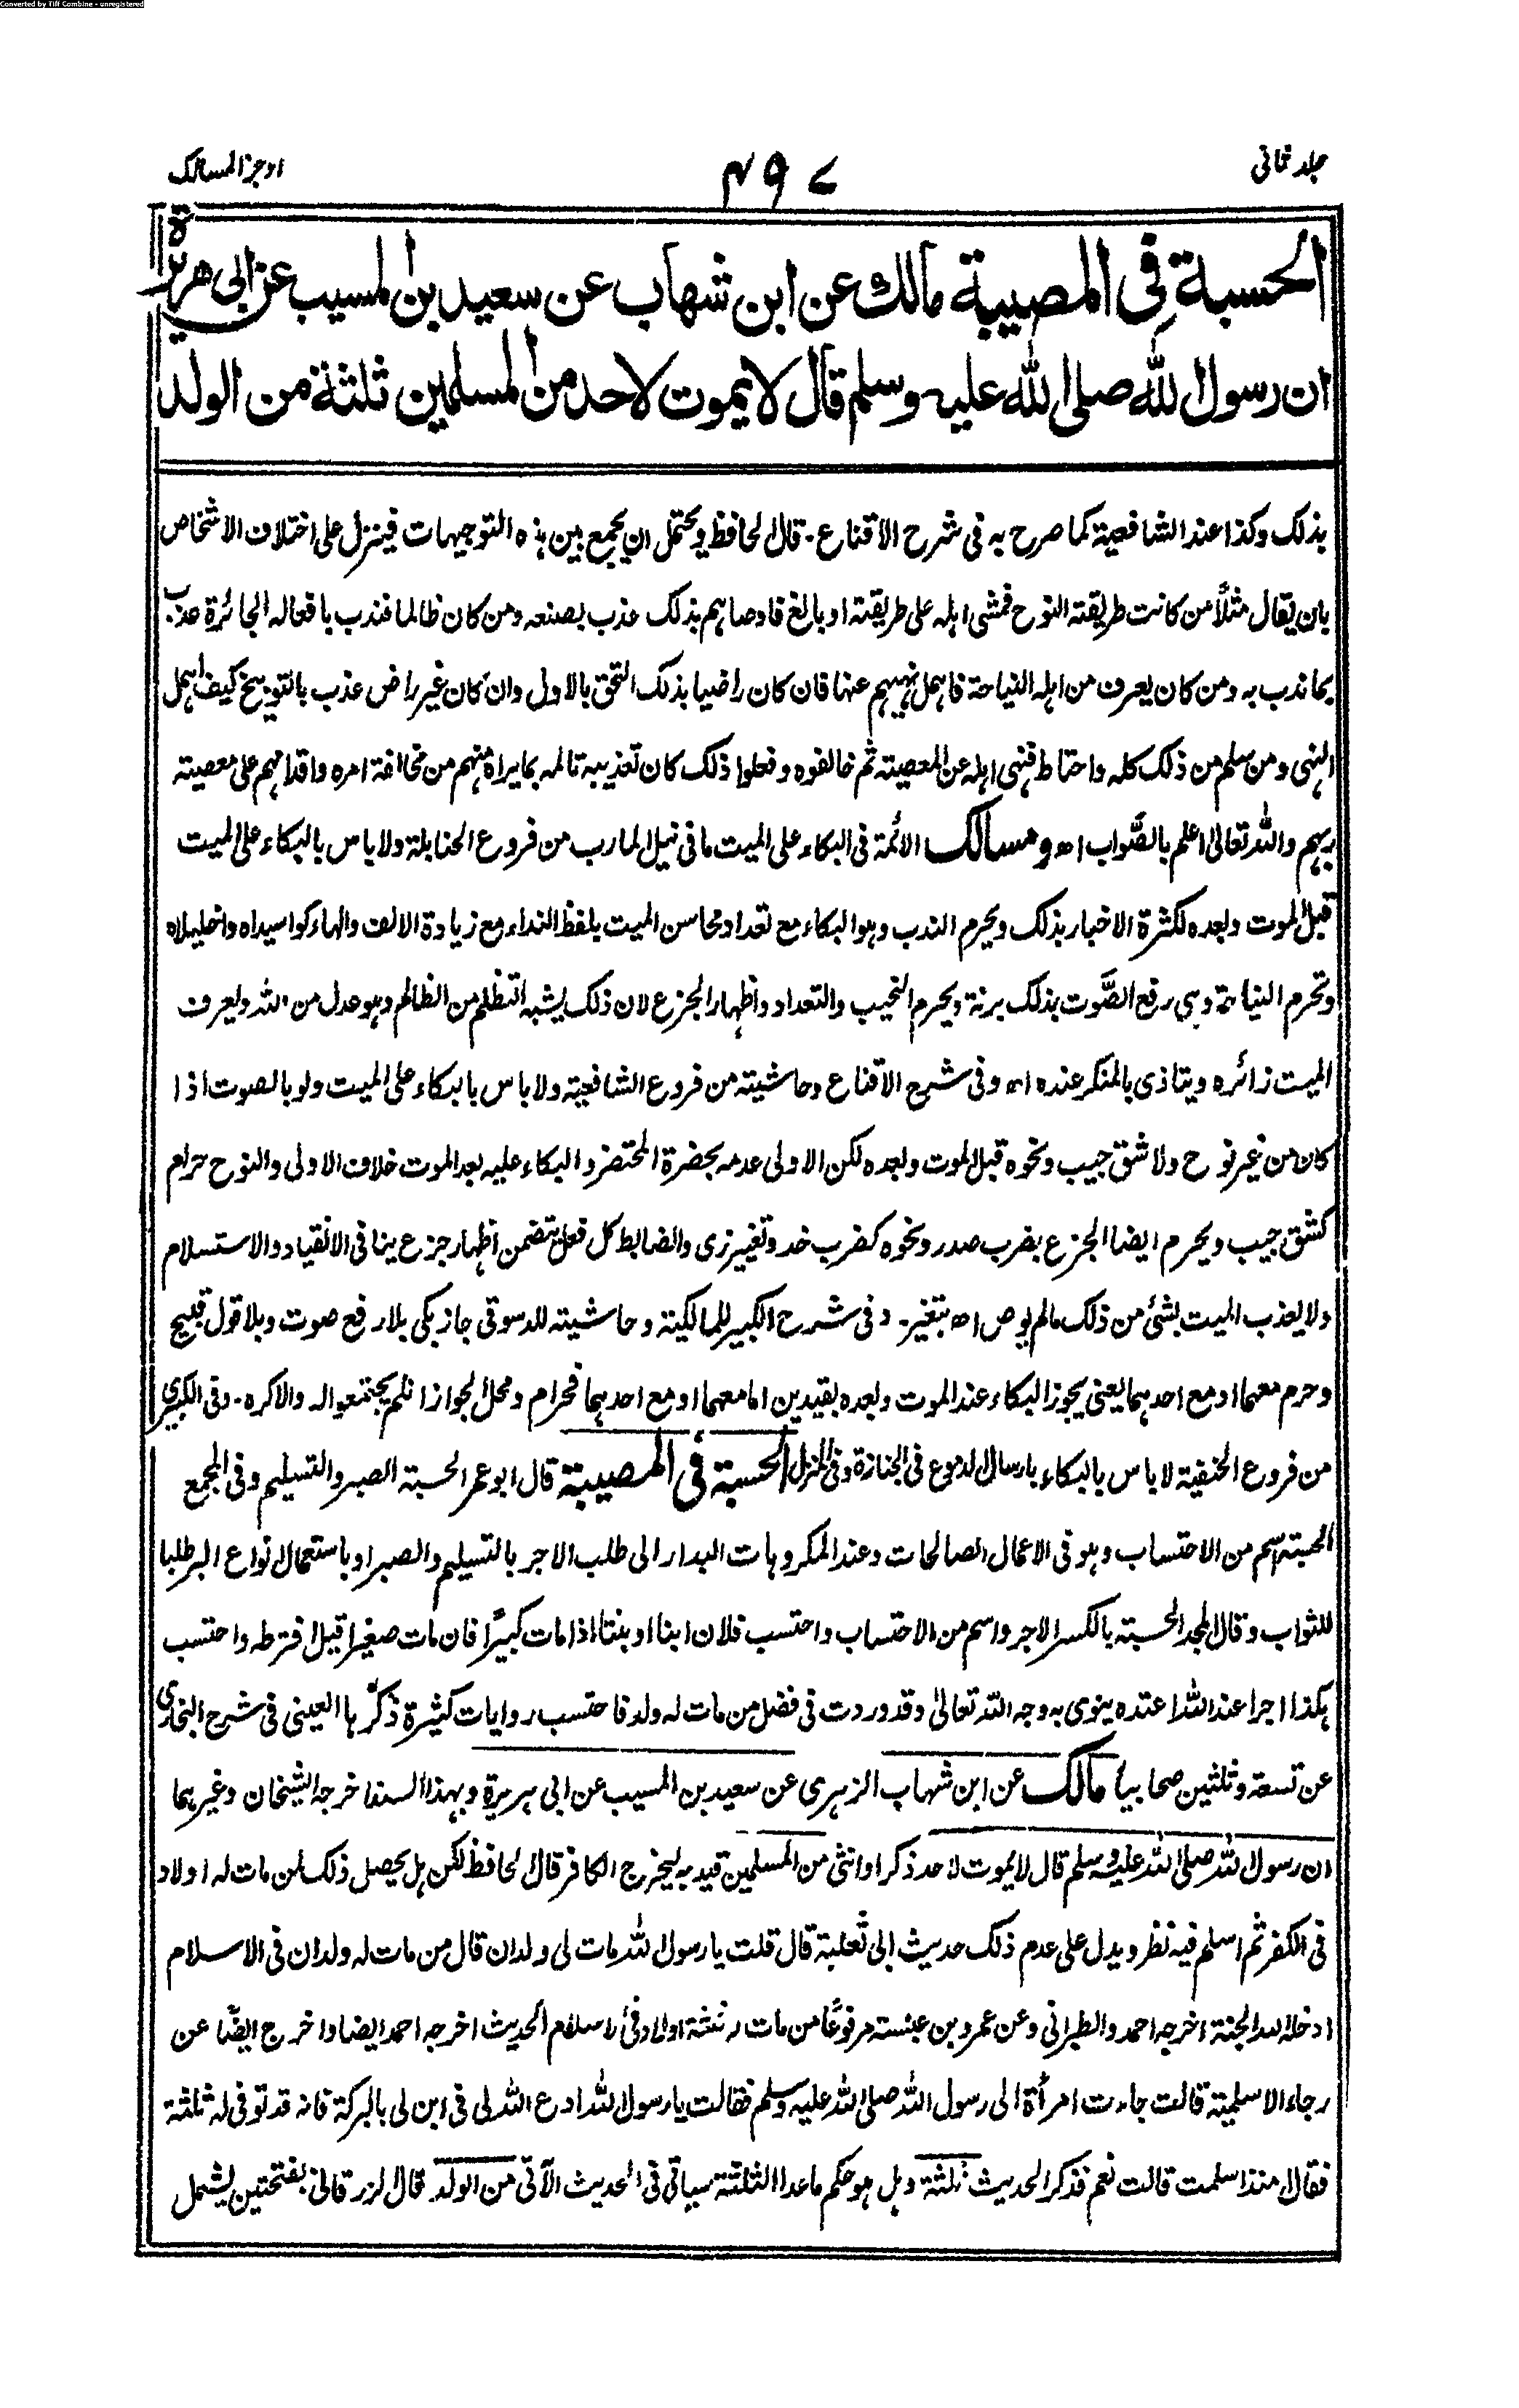 Converted by Tiff Combine - unregistered
جلد ثانی
۴۹۷
اوجز المسالک
الحسبة فی المصیبة مالك عن ابن شهاب عن سعید بن المسیب عن ابی هریرة
ان رسول الله صلی الله علیه وسلم قال لا یموت لاحد من المسلمین ثلثة من الولد
بذلک وکذا عند الشافعیة کما صرح به فی شرح الاقناع۔ قال الحافظ ویحتمل ان یجمع بین هذه التوجیهات فینزل علی اختلاف الاشخاص
بان یقال مثلاً من کانت طریقته النوح فمشی اهله علی طریقته او بالغ فاوصاهم بذلک عذب بصنعه ومن کان ظالما فندب بافعاله الجائرة عذب
بما ندب به ومن کان یعرف من اهله النیاحة فاهمل نهیهم عنها فان کان راضیا بذلک التحق بالاول وان کان غیر راض عذب بالتوبیخ کیف اهمل
النهی ومن سلم من ذلک کله واحتاط فنهی اهله عن المعصیته ثم خالفوه وفعلوا ذلک کان تعذیبه تالمه بما یراه منهم من مخالفة امره واقدامهم علی معصیته
ربهم والله تعالی اعلم بالصَّواب اھ ومسالک الائمة فی البکاء علی المیت ما فی نیل المارب من فروع الحنابلة ولا باس بالبکاء علی المیت
قبل الموت وبعده لکثرة الاخبار بذلک ویحرم الندب وهو البکاء مع تعداد محاسن المیت بلفظ النداء مع زیادة الالف والهاء کوا سیداه واخلیلاه
وتحرم النیاحة وهی رفع الصَّوت بذلک برنة ویحرم النحیب والتعداد واظهار الجزع لان ذلک یشبه التظلم من الظالم وهو عدل من الله ویعرف
المیت زائره ویتاذی بالمنکر عنده اھ وفی شرح الاقناع وحاشیته من فروع الشافعیة ولا باس بالبکاء علی المیت ولو بالصوت اذا
کان من غیر نوح ولا شق جیب ونحوه قبل الموت وبعده لکن الاولی عدمه بحضرة المحتضر والبکاء علیه بعد الموت خلاف الاولی والنوح حرام
کشق جیب ویحرم ایضا الجزع بضرب صدر ونحوه کضرب خد وتغییر زی والضابط کل فعل یتضمن اظهار جزع ینافی الانقیاد والاستسلام
ولا یعذب المیت بشئ من ذلک مالم یوص اھ بتغیر۔ وفی شرح الکبیر للمالکیة وحاشیته للدسوقی جاز بکی بلا رفع صوت وبلا قول قبیح
وحرم معهما او مع احدهما یعنی یجوز البکاء عند الموت وبعده بقیدین اما معهما او مع احدهما فحرام ومحل الجواز اذا لم یجتمعوا له والا کره۔ وفی الکبیری
من فروع الحنفیة لا باس بالبکاء بارسال الدموع فی الجنازة وفی المنزل الحسبة فی المصیبة قال ابو عمر الحسبة الصبر والتسلیم وفی المجمع
الحسبة اسم من الاحتساب وهو فی الاعمال الصالحات وعند المکروهات البدار الی طلب الاجر بالتسلیم والصبر او باستعمال انواع البر طلبا
للثواب وقال المجد الحسبته بالکسر الاجر واسم من الاحتساب واحتسب فلان ابنا او بنتا اذا مات کبیرًا فان مات صغیرا قیل افترطه واحتسب
بکذا اجرا عند الله اعتده ینوی به وجه الله تعالیٰ وقد وردت فی فضل من مات له ولد فاحتسب روایات کثیرة ذکرها العینی فی شرح البخاری
عن تسعة وثلثین صحابیاً مالک عن ابن شهاب الزهری عن سعید بن المسیب عن ابی هریرة وبهذا السند اخرجه الشیخان وغیرهما
ان رسول الله صلی الله علیه وسلم قال لا یموت لاحد ذکرا او انثی من المسلمین قید به لیخرج الکافر قال الحافظ لکن هل یحصل ذلک لمن مات له اولاد
فی الکفر ثم اسلم فیه نظر ویدل علی عدم ذلک حدیث ابی ثعلبة قال قلت یا رسول الله مات لی ولدان قال من مات له ولدان فی الاسلام
ادخله الله الجنة اخرجه احمد والطبرانی وعن عمرو بن عبسته مرفوعًا من مات له ثلثة اولاد فی الاسلام الحدیث اخرجه احمد ایضا واخرج ایضًا عن
رجاء الاسلمیة قالت جاءت امرأة الی رسول الله صلی الله علیه وسلم فقالت یا رسول الله ادع الله لی فی ابن لی بالبرکة فانه قد توفی له ثلثة
فقال امنذ اسلمت قالت نعم فذکر الحدیث ثلثة وهل هو حکم ماعدا الثلثة سیاتی فی الحدیث الآتی من الولد قال الزرقانی بفتحتین یشمل